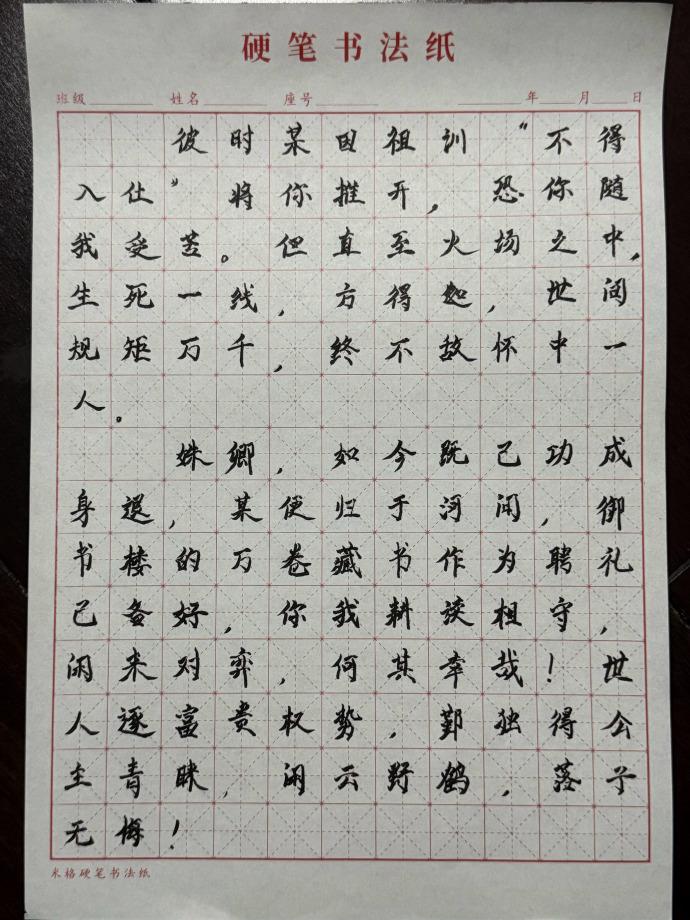 硬笔书法纸
班级 姓名 座号 年 月 日
彼时某因祖训“不得
入仕”将你推开，恐你随
我受苦。但直至火场之中，
生死一线，方得知，世间
规矩万千，终不敌怀中一
人。
姝卿，如今既已功成
身退，某便归于河间，御
书楼的万卷藏书作为聘礼
已备好，你我耕读相守，
闲来对弈，何其幸哉！世
人逐富贵权势，鄞独得公
主青眯，闲云野鹤，落子
无悔！
米格硬笔书法纸